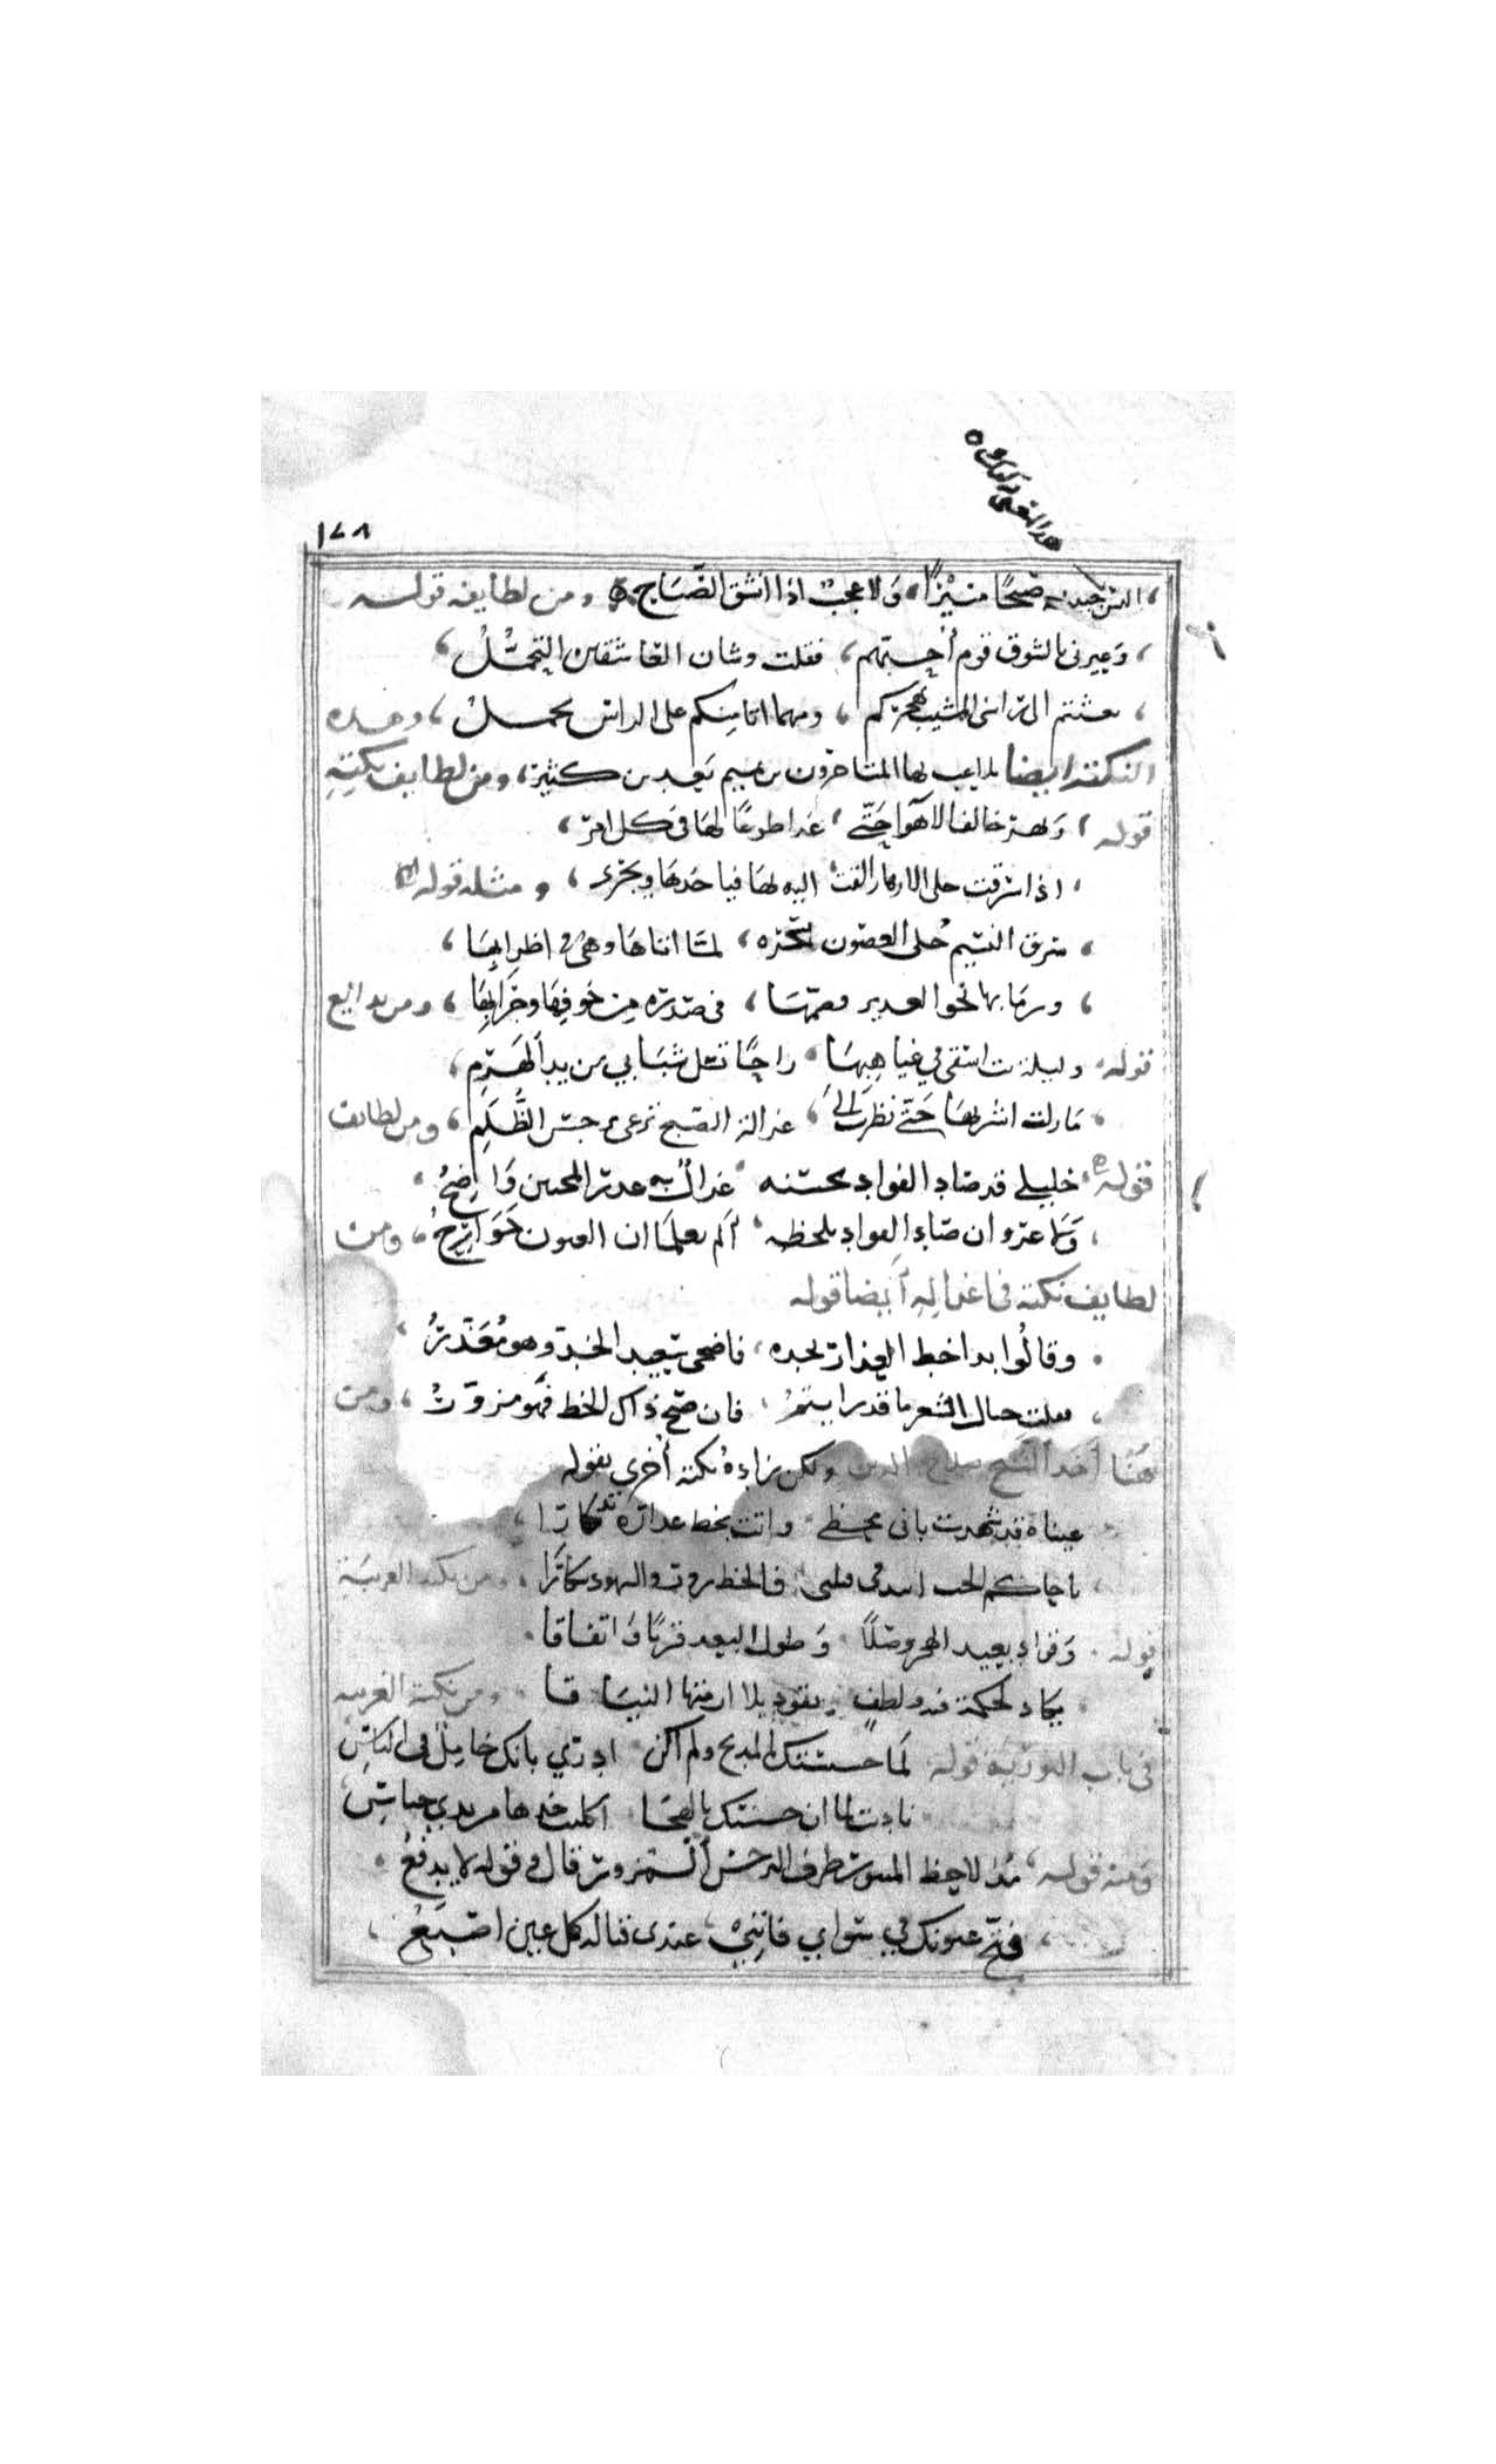 ١٧٨
جبينه صبحا منيرا، ولا عجب اذا انشق الصباح ومن لطايفه قوله
وعيرني بالشوق قوم أحبتهم، فقلت وشان العاشقين التجمل،
بعثتم الى راسى المشيب بهجركم، ومهما اتا منكم على الراس يحمل، وهذه
النكتة ايضا تلاعب بها المتاخرون من بعد بن كثيرة، ومن لطايف نكته
قوله، ونهر خالف الاهوا حتى، غدا طوعا لها فى كل امر،
اذا سرقت حلى الازهار القت، اليه لها فياخذها ويجرى، ومثله قوله
سرق النسيم حلى الغصون بسحره، لما اتاها وهى فى اطرابها،
ورما بها نحو الغدير فضمها، فى صدره من خوفها وجرابها، ومن بدايع
قوله وليلة بت اسقى في غياهبها، راحا تسل شبابي من يد الهرم،
ما زلت اشربها حتى نظرت الى، غزالة الصبح ترعى نرجس الظلم، ومن لطايف
قوله خليلي قد صاد الفواد بحسنه، غزال به عذر المحبين واضح،
ولا غرو ان صاد الفواد بلحظه، ألم تعلما ان العيون جوارح، ومن
لطايف نكته فى اغزاله أيضا قوله
وقالوا بدا خط العذار بخده، فاضحى الخد وهو معذر،
فقلت الشعر ما قد رايتم، فان صح ذاك الخط فهو مزور، ومن
هنا أخذ الشيخ صلاح الدين ولكن زاده نكتة أخرى بقوله
عيناه قد شهدت بانى مخطئ، واتت بخط عذاره تذكارا،
يا حاكم الحب اتئد فى قتلتى، فالخط زور والشهود سكارا، ومن نكته الغريبة
قوله، وقواد يعيد الهجر وصلا، وطول البعد قربا واتفاقا،
يكاد لحكمة فيه ولطف، يقود بلا ازمتها النياقا، ومن نكته الغريبه
فى باب التورية قوله، لما حسنتك المديح ولم اكن، ادري بانك خامل فى الناس
نادت لما ان حسنتك بالهجا،
ومنه قوله، مذ لاحظ المنثور طرف النرجس المزور قال وقوله لا يدفع
فتح عيونك في سواي فانني، عندى قبالة كل عين اصبع،